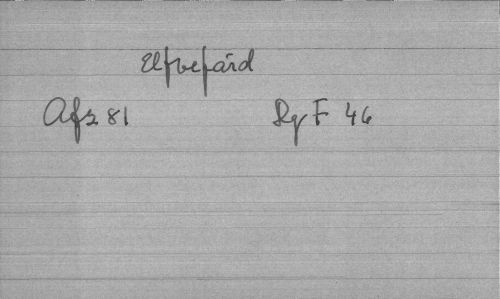 Elfvefård
Afz 81 Rg F 46